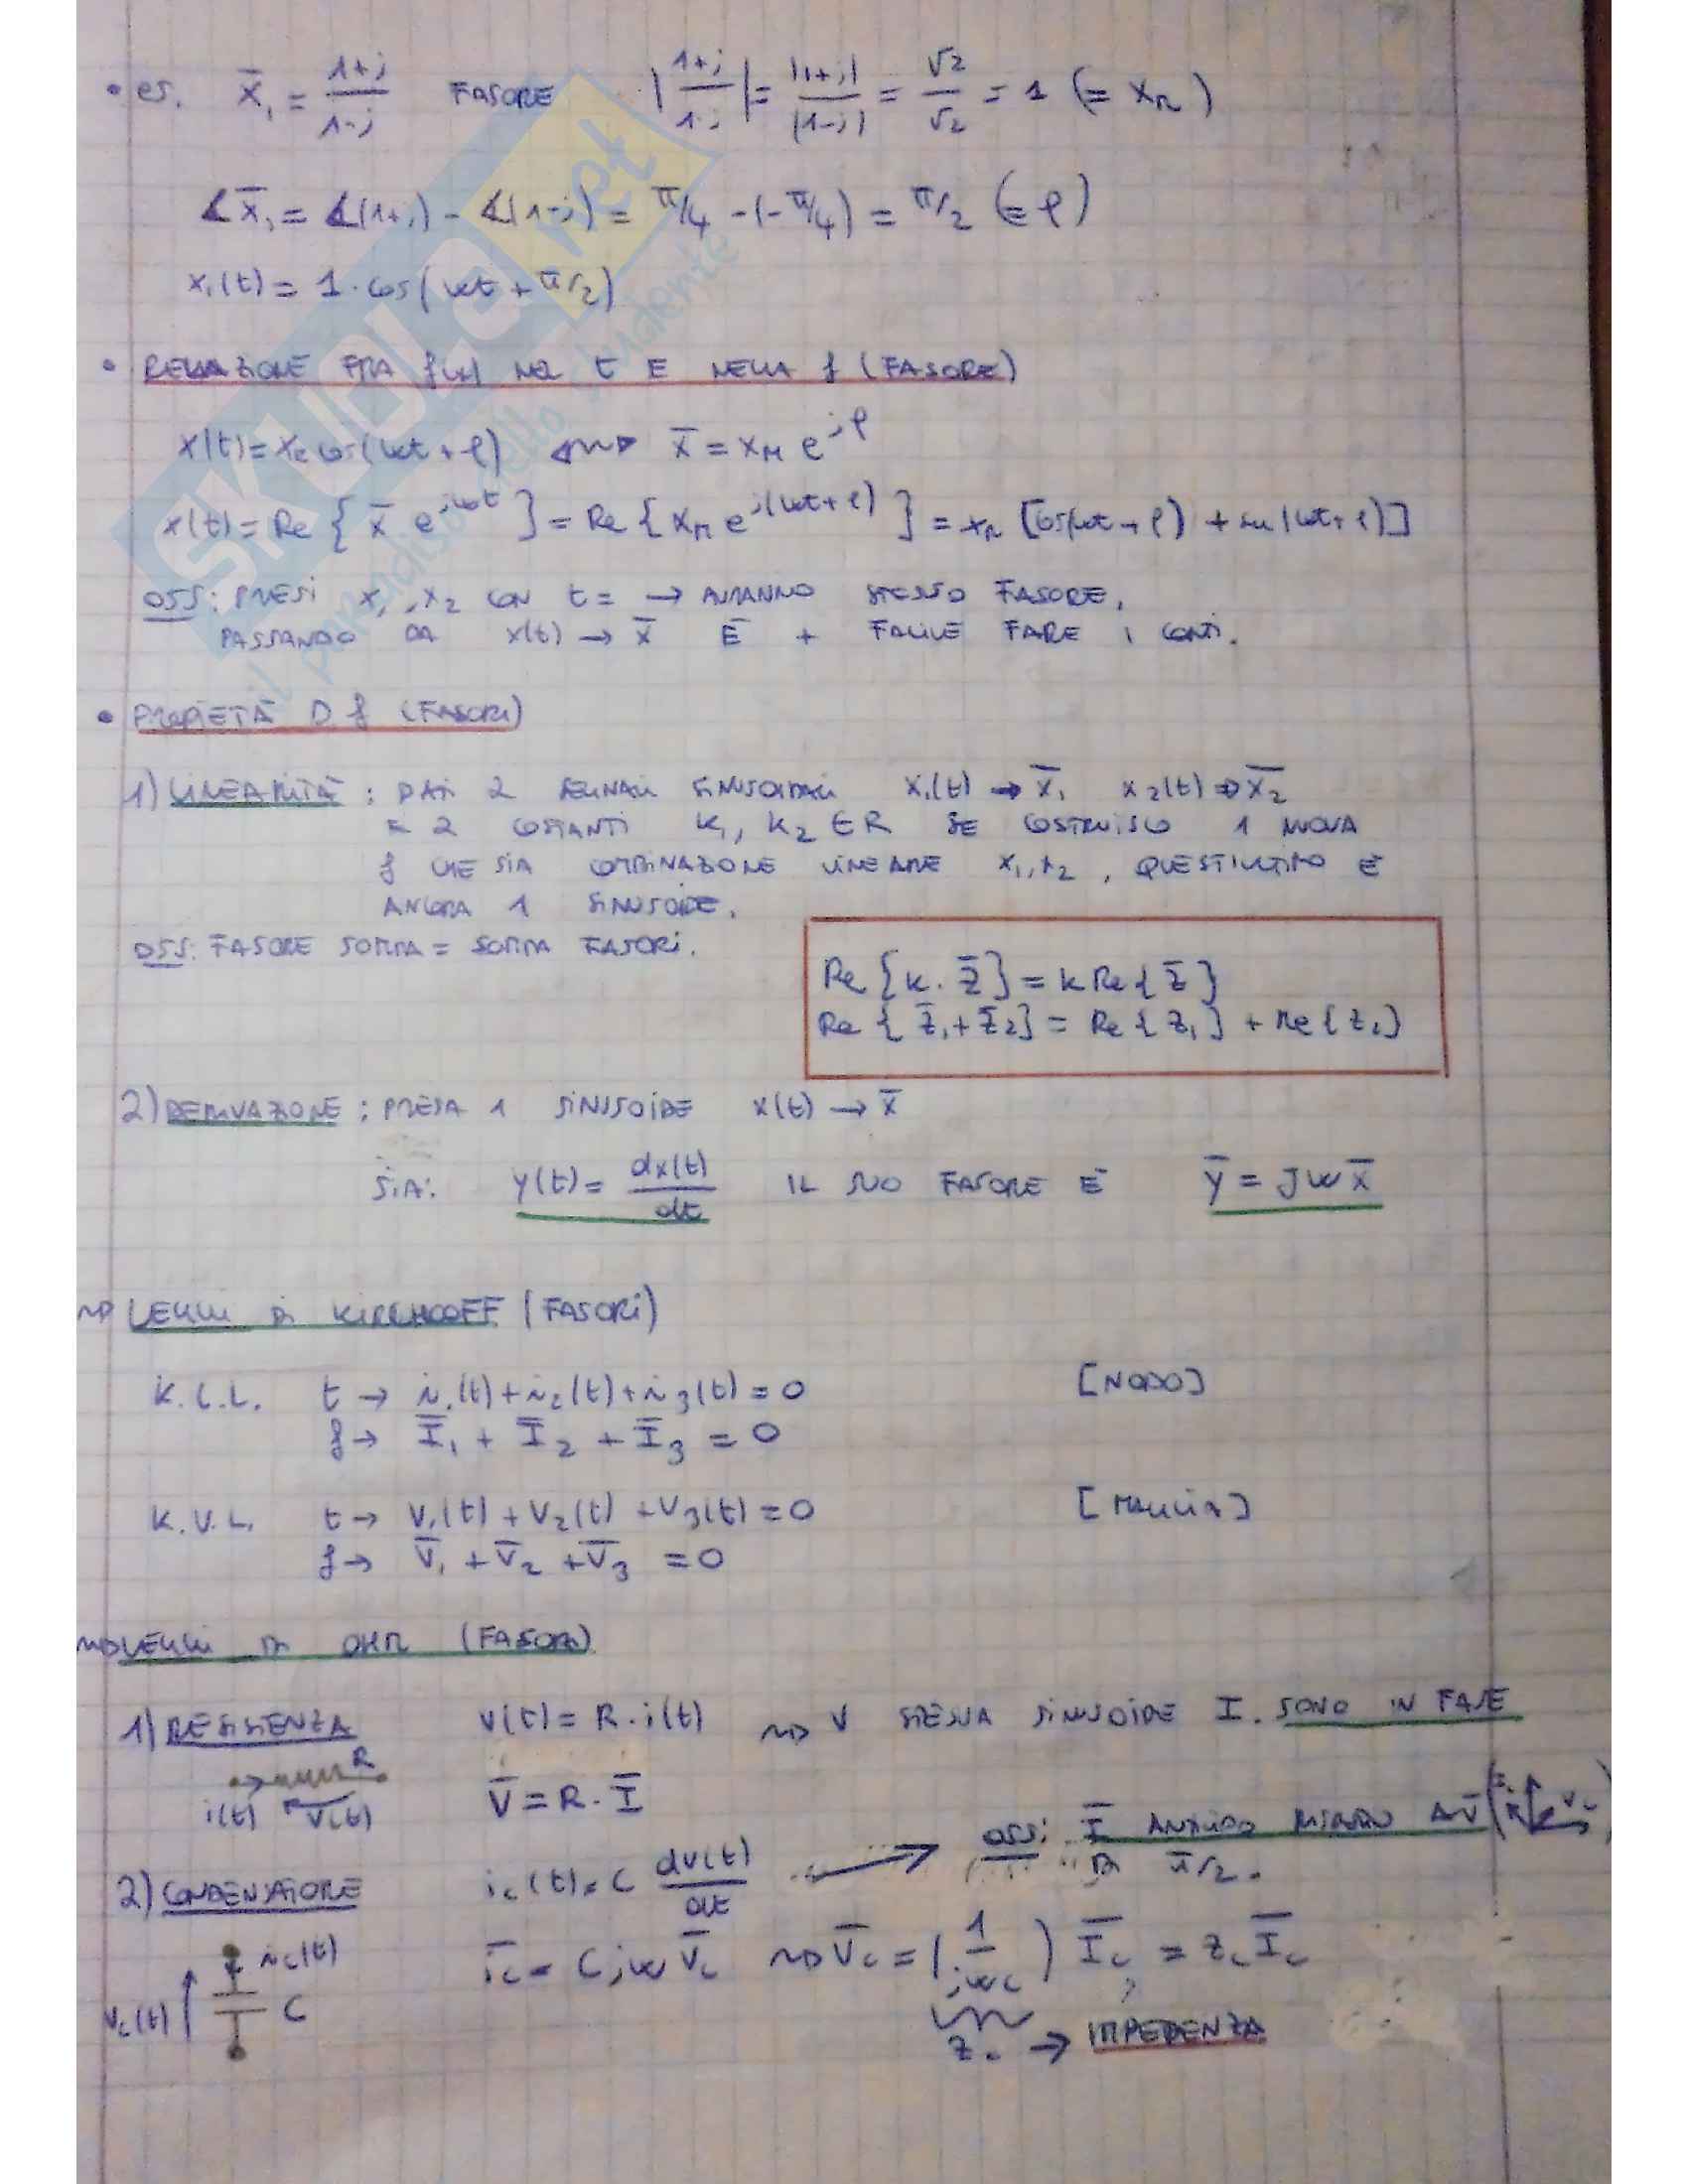 • es. X̄₁ = (1+j)/(1-j) FASORE |(1+j)/(1-j)| = |1+j|/|1-j| = √2/√2 = 1 (= X_M)
∡X̄₁ = ∡(1+j) - ∡(1-j) = π/4 - (-π/4) = π/2 (= φ)
x₁(t) = 1·cos(ωt + π/2)
• RELAZIONE FRA f(x) NEL t E NELLA f (FASORE)
x(t) = X_M cos(ωt + φ) ⟿ X̄ = X_M e^{jφ}
x(t) = Re{X̄ e^{jωt}} = Re{X_M e^{j(ωt+φ)}} = X_M [cos(ωt + φ) + sen(ωt + φ)]
OSS: PRESI X₁, X₂ CON t = → AVRANNO STESSO FASORE,
PASSANDO DA x(t) → X̄ È + FACILE FARE I CONTI.
• PROPIETÀ D f (FASORI)
1) LINEARITÀ: DATI 2 SEGNALI SINUSOIDALI x₁(t) → X̄₁ x₂(t) ⇒ X̄₂
E 2 COSTANTI K₁, K₂ ∈ R SE COSTRUISCO 1 NUOVA
f CHE SIA COMBINAZIONE LINEARE X₁, X₂, QUEST'ULTIMO È
ANCORA 1 SINUSOIDE.
OSS: FASORE SOMMA = SOMMA FASORI.
Re{K·Z̄} = K Re{Z̄}
Re{Z̄₁+Z̄₂} = Re{Z₁} + Re{Z₂}
2) DERIVAZIONE: PRESA 1 SINUSOIDE x(t) → X̄
SIA: y(t) = dx(t)/dt IL SUO FASORE È Ȳ = JωX̄
⟿ LEGGI DI KIRCHOOFF (FASORI)
K.C.L. t → i₁(t)+i₂(t)+i₃(t) = 0 [NODO]
f → Ī₁ + Ī₂ + Ī₃ = 0
K.V.L. t → V₁(t) + V₂(t) + V₃(t) = 0 [MAGLIA]
f → V̄₁ + V̄₂ + V̄₃ = 0
⟿ LEGGI DI OHM (FASORI)
1) RESISTENZA v(t) = R·i(t) ⟿ V STESSA SINUSOIDE I. SONO IN FASE
R
i(t) V(t) V̄ = R·Ī
OSS: Ī ANTICIPO RISPETTO A V̄
DI π/2.
2) CONDENSATORE i_c(t) = C dv(t)/dt
i_c(t) ī_c = C jω V̄_c ⟿ V̄_c = (1/jωC) Ī_c = Z_c Ī_c
V_c(t) C
Z_c → IMPEDENZA
SKUOLA.net
il paradiso dello studente